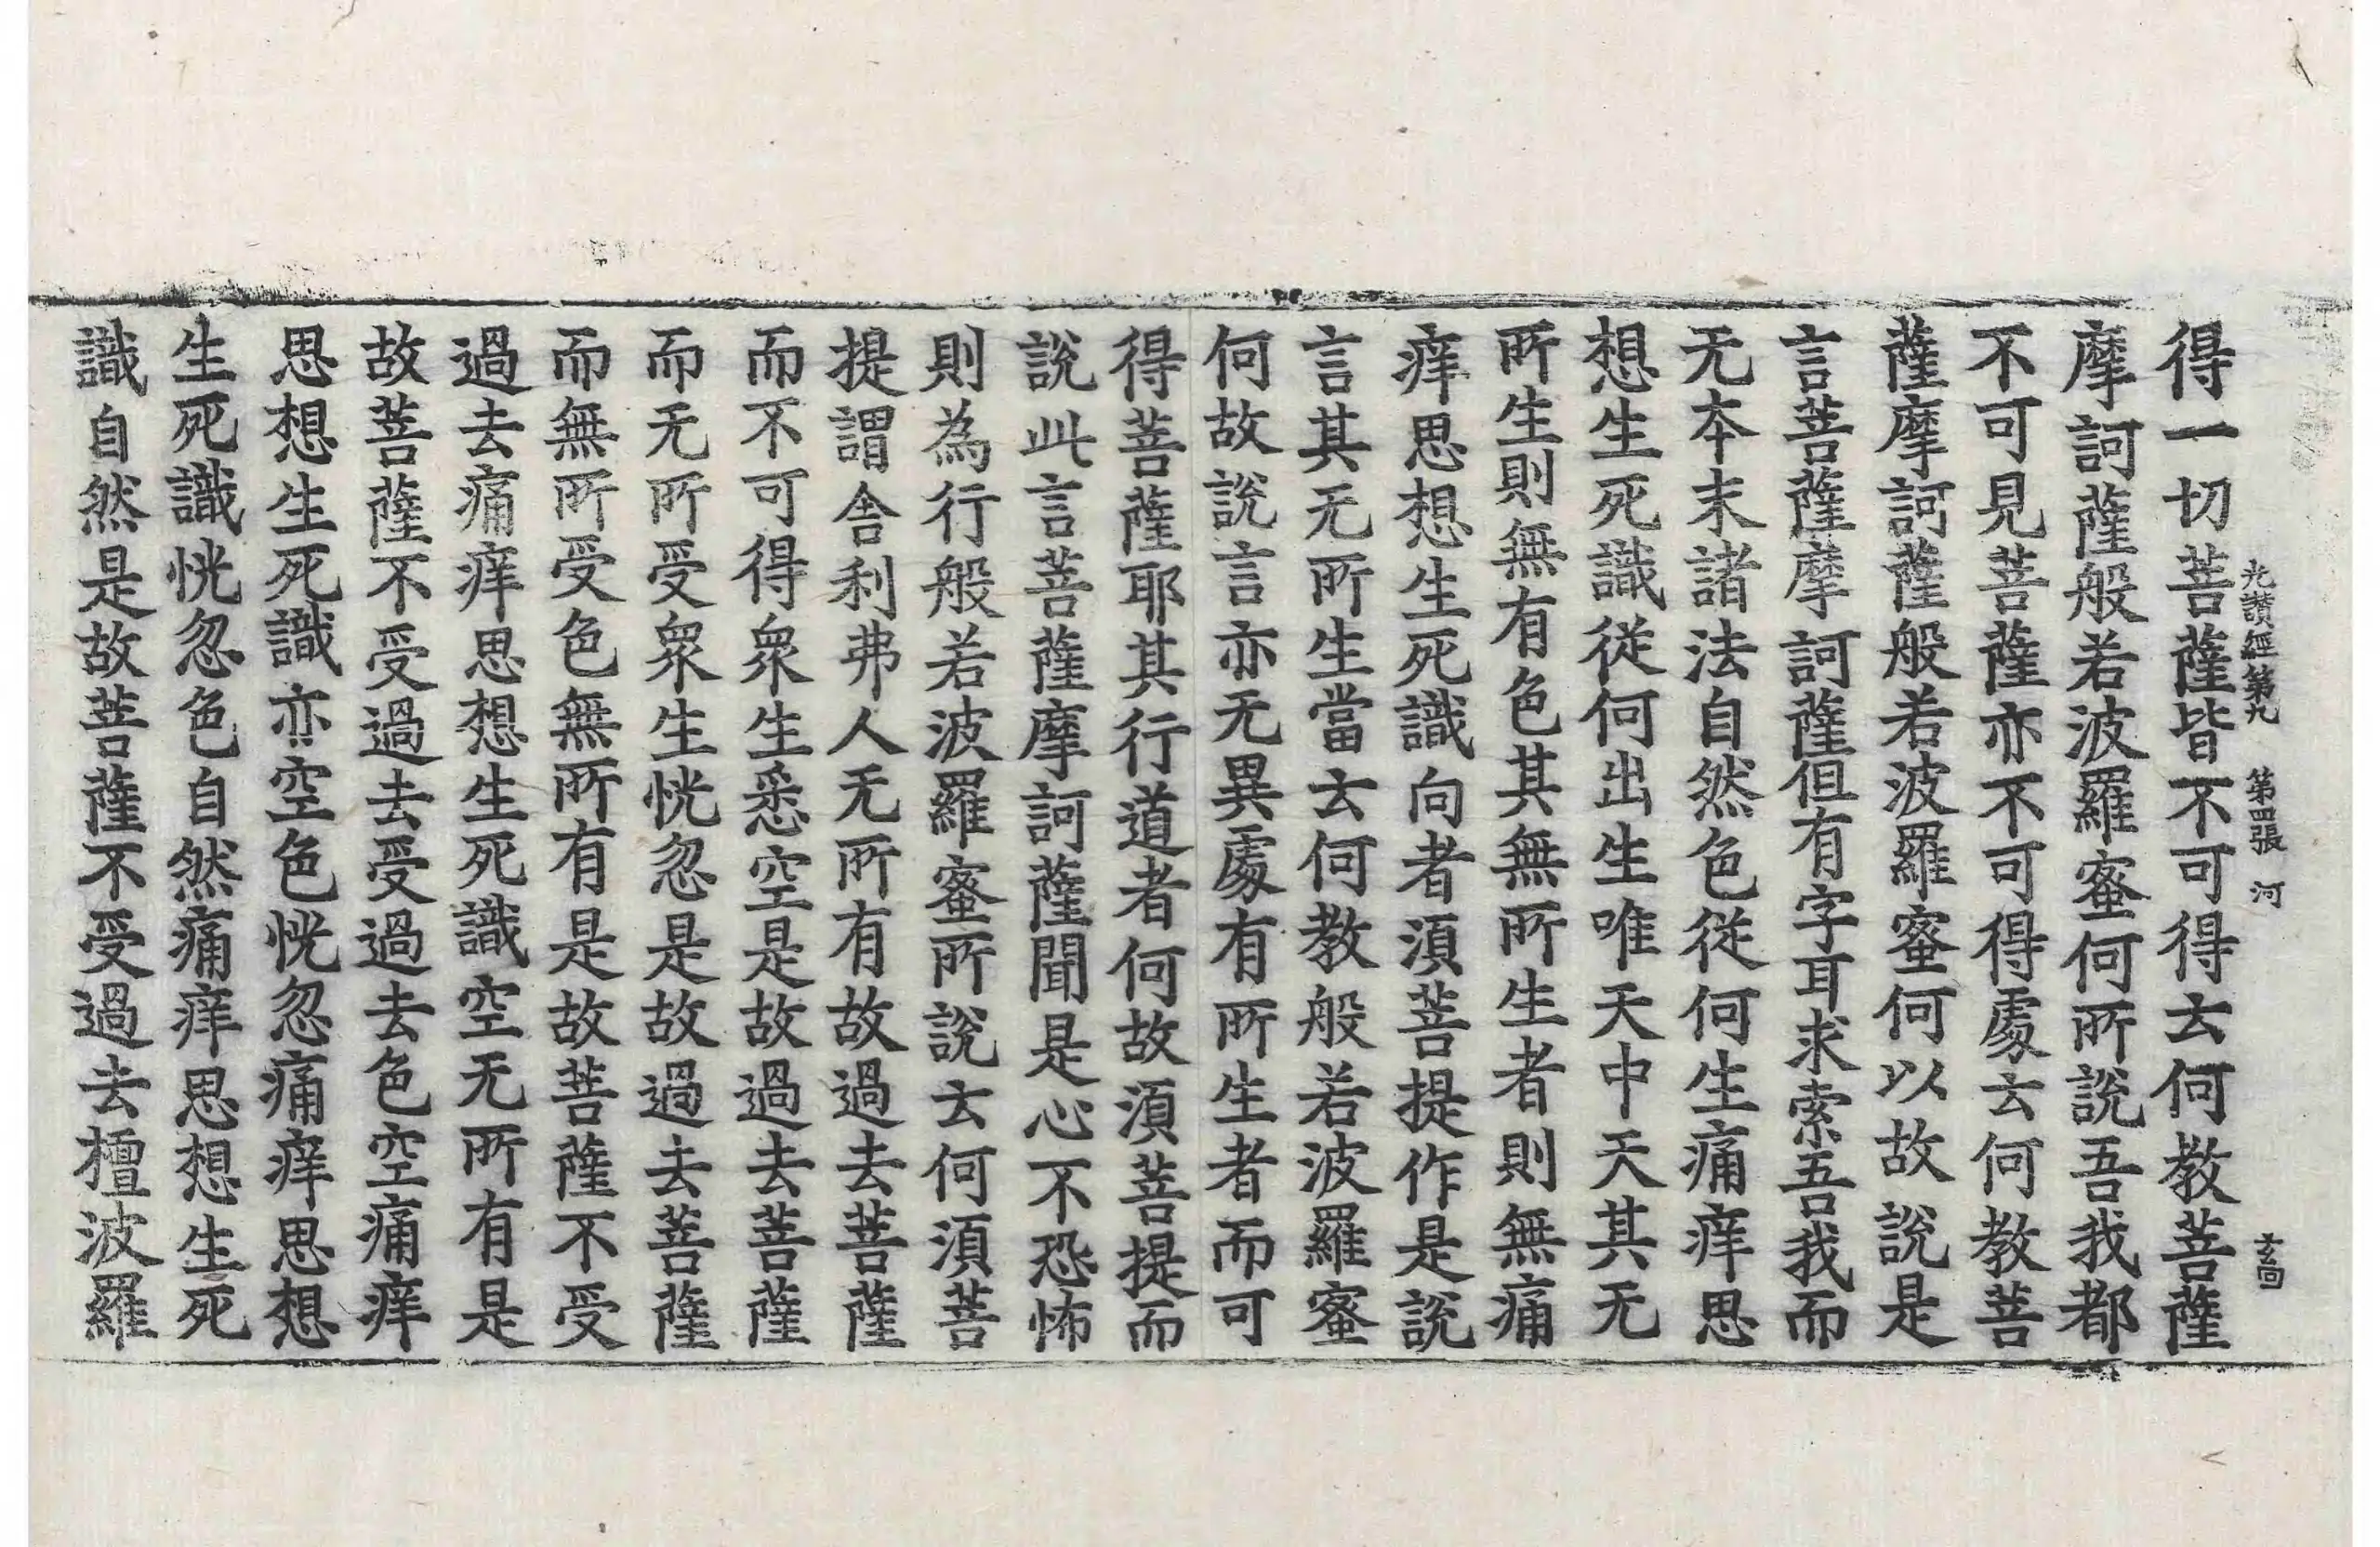 得一切菩薩皆不可得云何教菩薩
光讚經第九 第四張 河
摩訶薩般若波羅蜜何所說吾我都
不可見菩薩亦不可得處云何教菩
薩摩訶薩般若波羅蜜何以故說是
言菩薩摩訶薩但有字耳求索吾我而
无本末諸法自然色從何生痛痒思
想生死識從何出生唯天中天其无
所生則無有色其無所生者則無痛
痒思想生死識向者須菩提作是說
言其无所生當云何教般若波羅蜜
何故說言亦无異處有所生者而可
得菩薩耶其行道者何故須菩提而
說此言菩薩摩訶薩聞是心不恐怖
則為行般若波羅蜜所說云何須菩
提謂舍利弗人无所有故過去菩薩
而不可得衆生悉空是故過去菩薩
而无所受衆生恍忽是故過去菩薩
而無所受色無所有是故菩薩不受
過去痛痒思想生死識空无所有是
故菩薩不受過去受過去色空痛痒
思想生死識亦空色恍忽痛痒思想
生死識恍忽色自然痛痒思想生死
識自然是故菩薩不受過去檀波羅